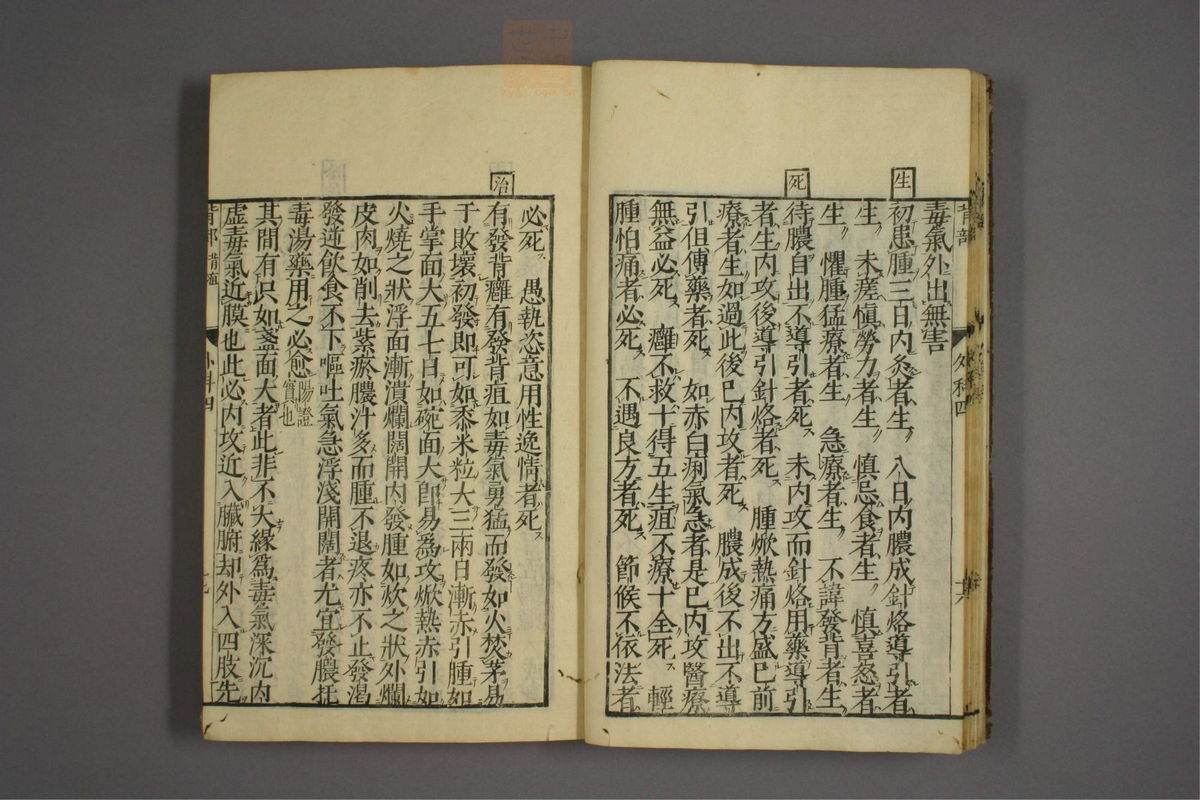 背部
外科四
十八
毒氣外出無害
生
初患腫三日内灸者生 八日内膿成針烙導引者
生 未瘥愼勞力者生 慎忌食者生 慎喜怒者
生 懼腫猛療者生 急療者生 不諱發背者生
死
待膿自出不導引者死 未内攻而針烙用藥導引
者生内攻後導引針烙者死 腫焮熱痛方盛已前
療者生如過此後已内攻者死 膿成後不出不導
引但傅藥者死 如赤白痢氣急者是已内攻醫療
無益必死 癰不救十得五生疽不療十全死 輕
腫怕痛者必死 不遇良方者死 節候不依法者
必死 愚執恣意用性逸情者死
治
有發背癰有發背疽如毒氣勇猛而發如火焚茅易
于敗壞初發即可如黍米粒大三兩日漸赤引腫如
手掌面大五七日如碗面大即易爲攻焮熱赤引如
火燒之狀浮面漸潰爛闊開内發腫如炊之狀外爛
皮肉如削去紫瘀膿汁多而腫不退疼亦不止發渴
發逆飲食不下嘔吐氣急浮淺開闊者尤宜發膿托
毒湯藥用之必愈陽證實也
其間有只如盞面大者此非不大緣爲毒氣深沉内
虛毒氣近膜也此必内攻近入臟腑却外入四肢先
背部
外科四